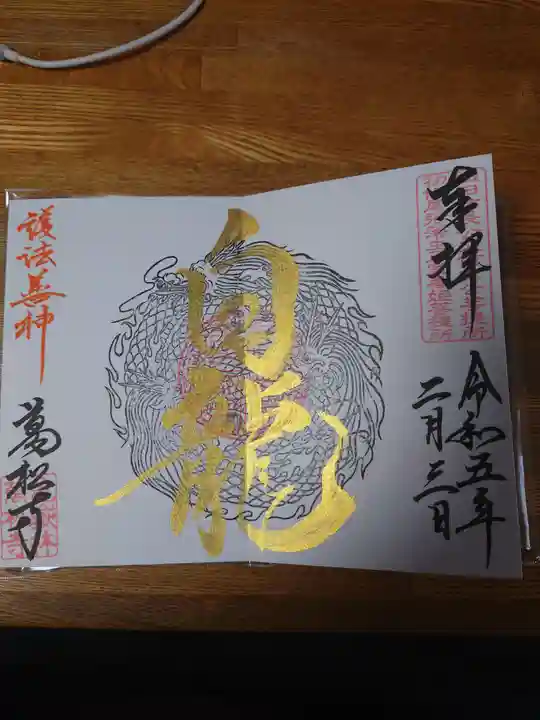 奉拝
令和五年
二月三日
白龍
護法善神
萬松寺